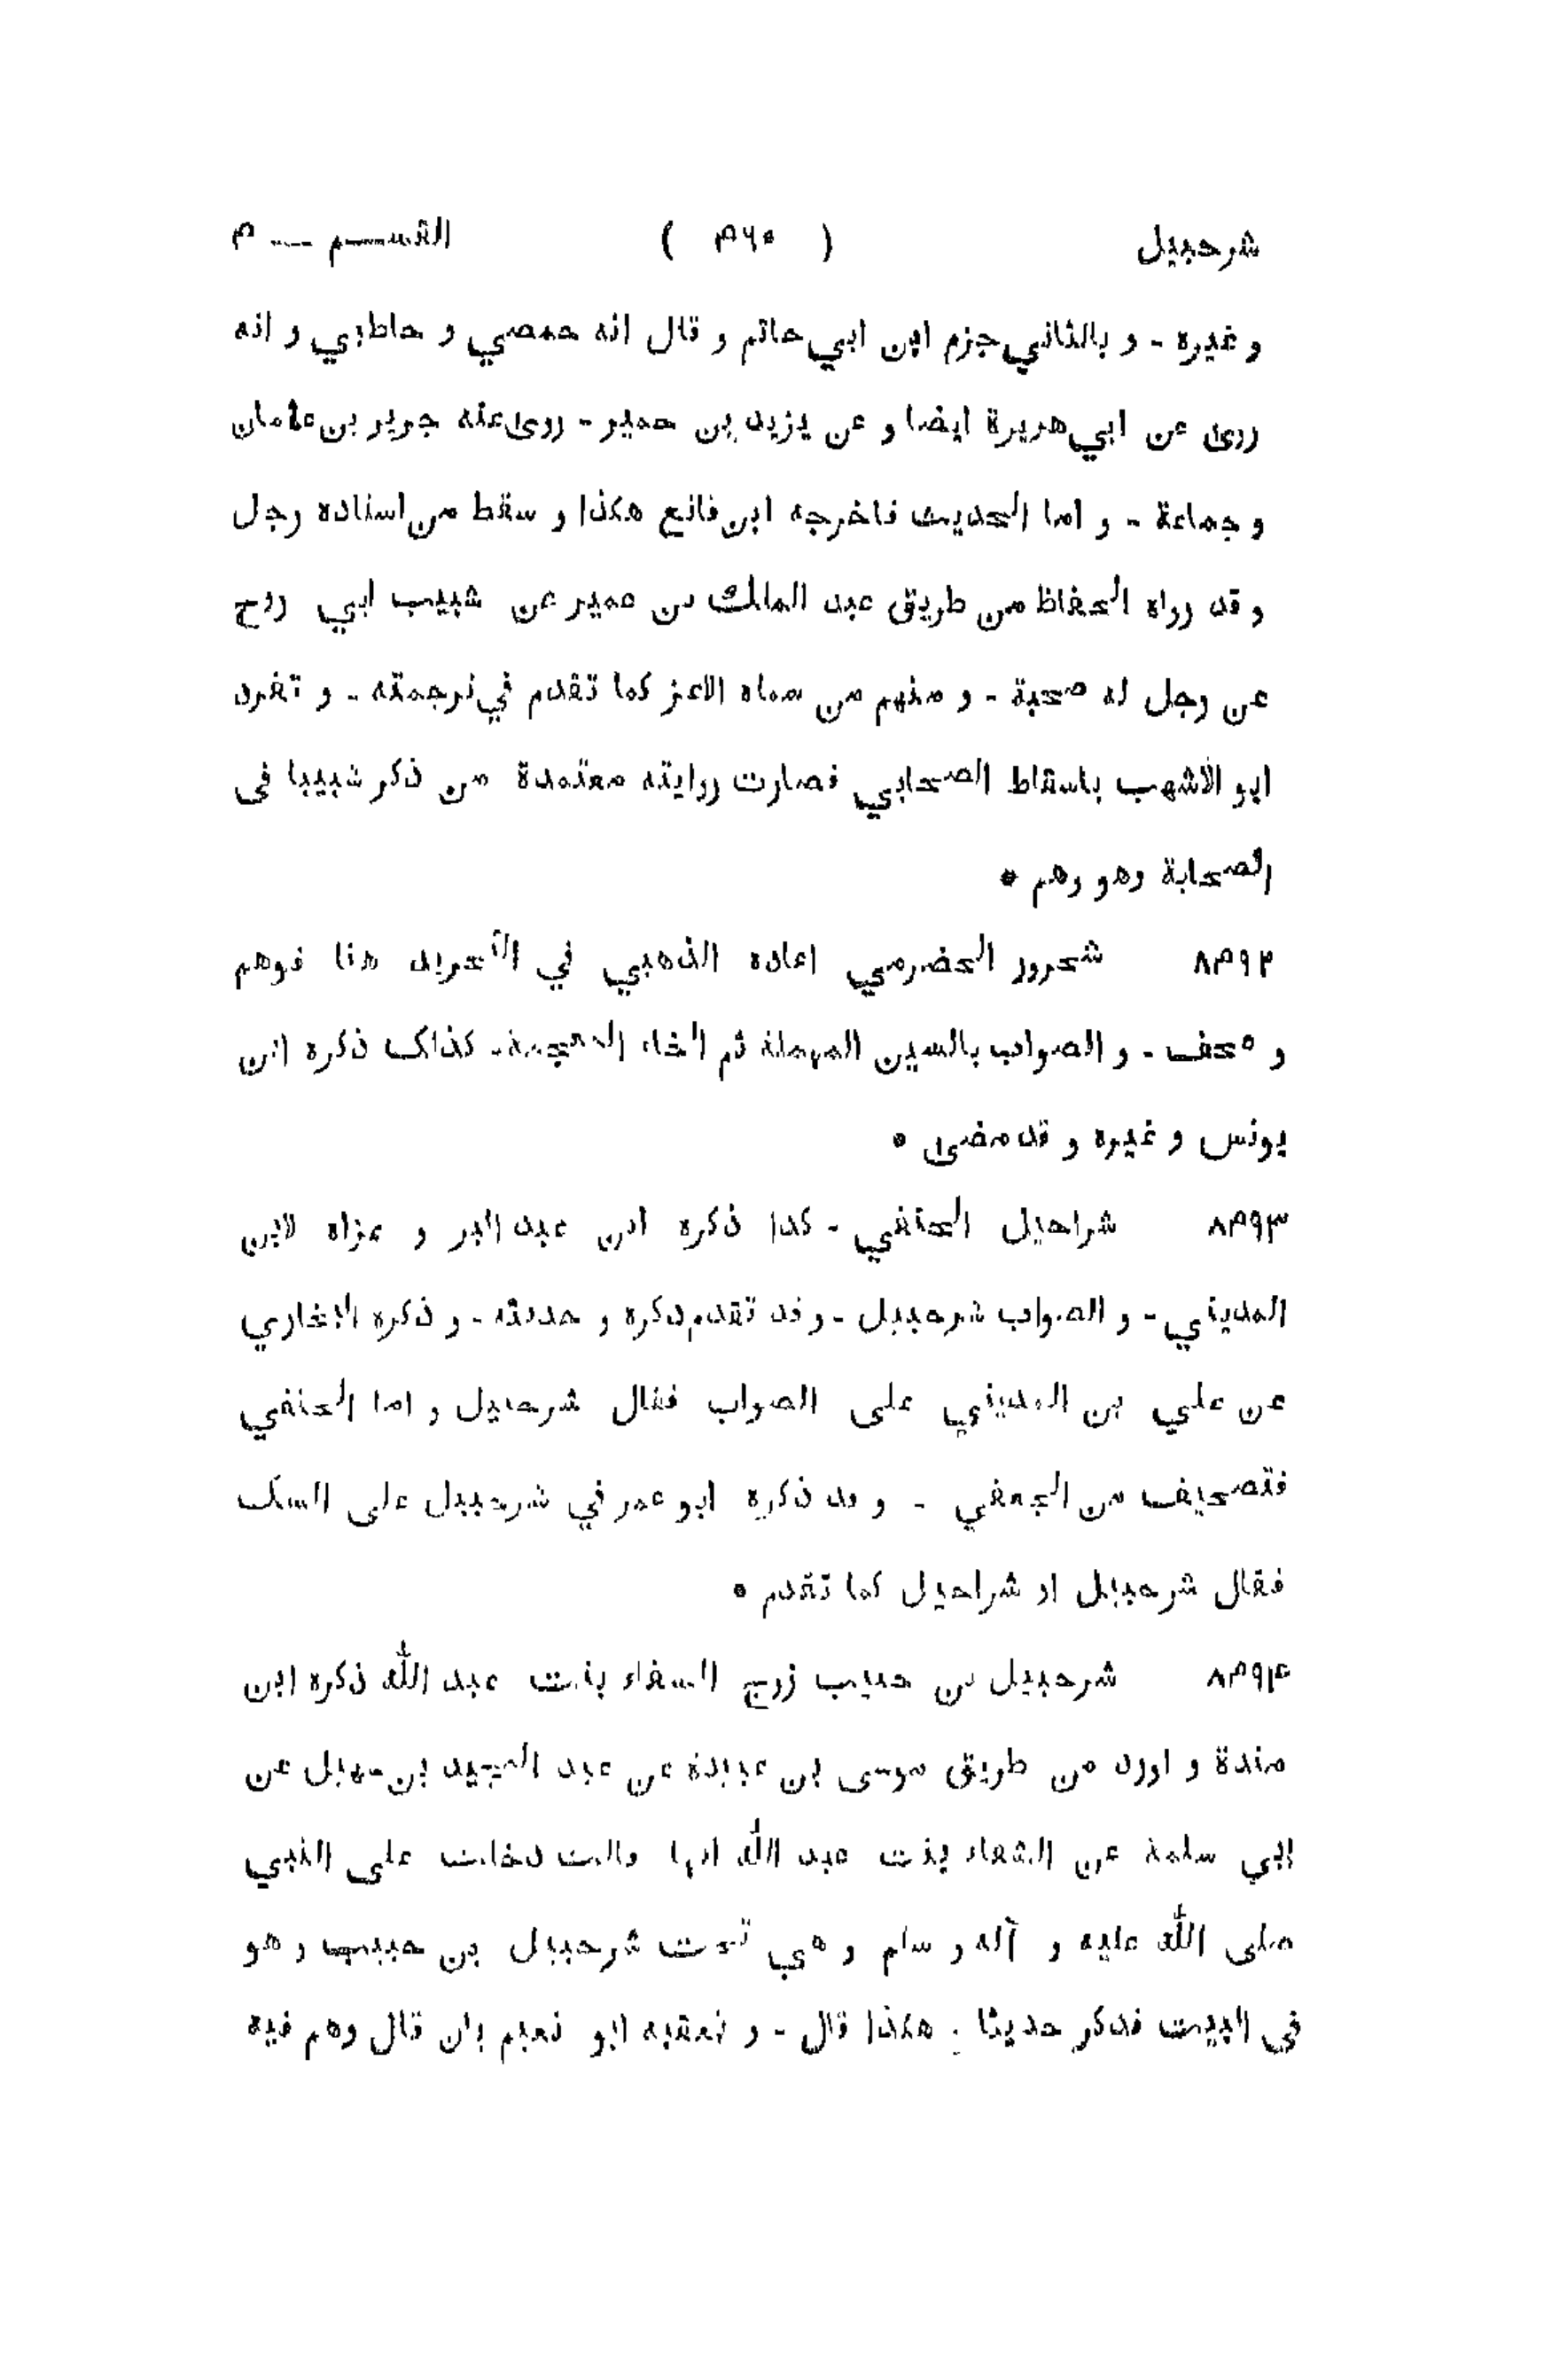 شرحبيل ( ٤٦٥ ) القسم — ٤
و غيره - و بالثاني جزم ابن ابي حاتم و قال انه حمصي و حاطبي و انه
روى عن ابي هريرة ايضا و عن يزيد بن حمير - روى عنه جرير بن عثمان
و جماعة - و اما الحديث فاخرجه ابن قانع هكذا و سقط من اسناده رجل
و قد رواه الحفاظ من طريق عبد المالك بن عمير عن شبيب ابي روح
عن رجل له صحبة - و منهم من سماه الاعز كما تقدم في ترجمته - و تفرد
ابو الأشهب باسقاط الصحابي فصارت روايته معتمدة من ذكر شبيبا فى
الصحابة وهو وهم *
٨٤٩٢ شحرور الحضرمي اعاده الذهبي في التجريد هنا فوهم
و صحف - و الصواب بالسين المهملة ثم الخاء المعجمة - كذلك ذكره ابن
يونس و غيره و قد مضى *
٨٤٩٣ شراحيل الحنفي - كذا ذكره ابن عبد البر و عزاه لابن
المديني - و الصواب شرحبيل - و قد تقدم ذكره و حديثه - و ذكره البخاري
عن علي بن المديني على الصواب فقال شرحبيل و اما الحنفي
فتصحيف من الجعفي - و قد ذكره ابو عمر في شرحبيل على الشك
فقال شرحبيل او شراحيل كما تقدم *
٨٤٩٤ شرحبيل بن حبيب زوج الشفاء بنت عبد الله ذكره ابن
مندة و اورد من طريق موسى بن عبيدة عن عبد المجيد بن سهيل عن
ابي سلمة عن الشفاء بنت عبد الله انها قالت دخلت على النبي
صلى الله عليه و آله و سلم و هي تحت شرحبيل بن حبيب و هو
في البيت فذكر حديثا . هكذا قال - و تعقبه ابو نعيم بان قال وهم فيه